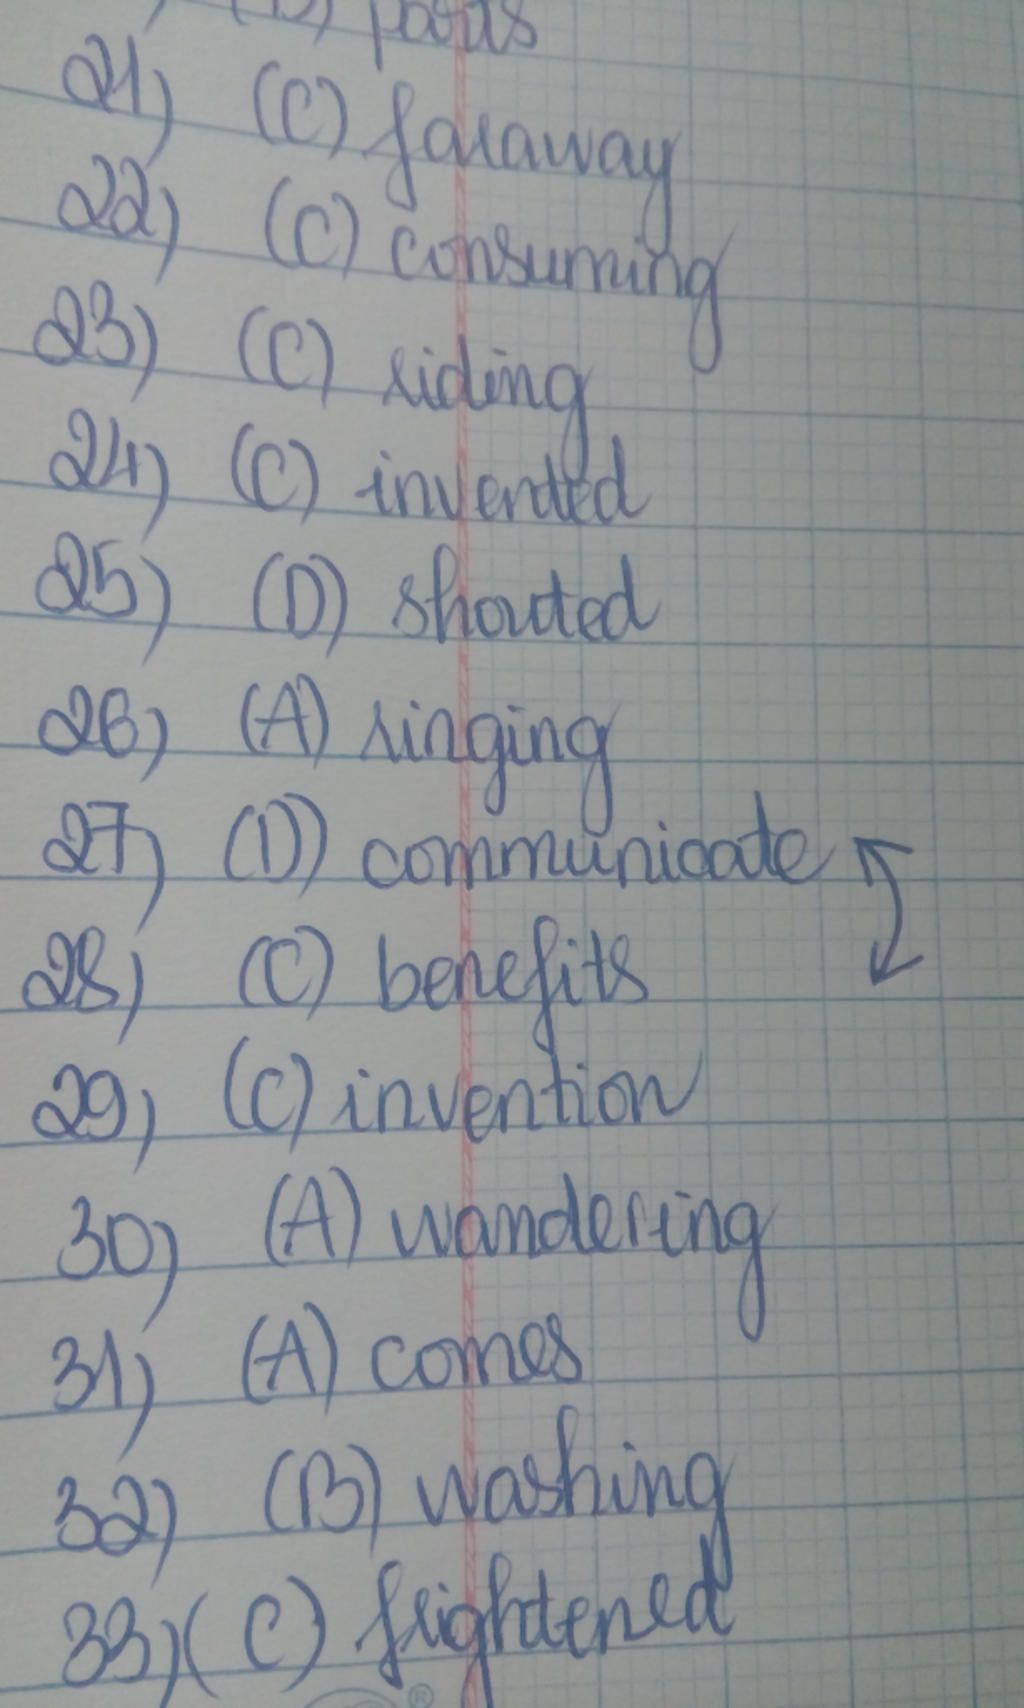 21) (C) faraway
22) (C) consuming
23) (C) riding
24) (C) invented
25) (D) shouted
26) (A) ringing
27) (D) communicate
28) (C) benefits
29) (C) invention
30) (A) wandering
31) (A) comes
32) (B) washing
33) (C) frightened
®